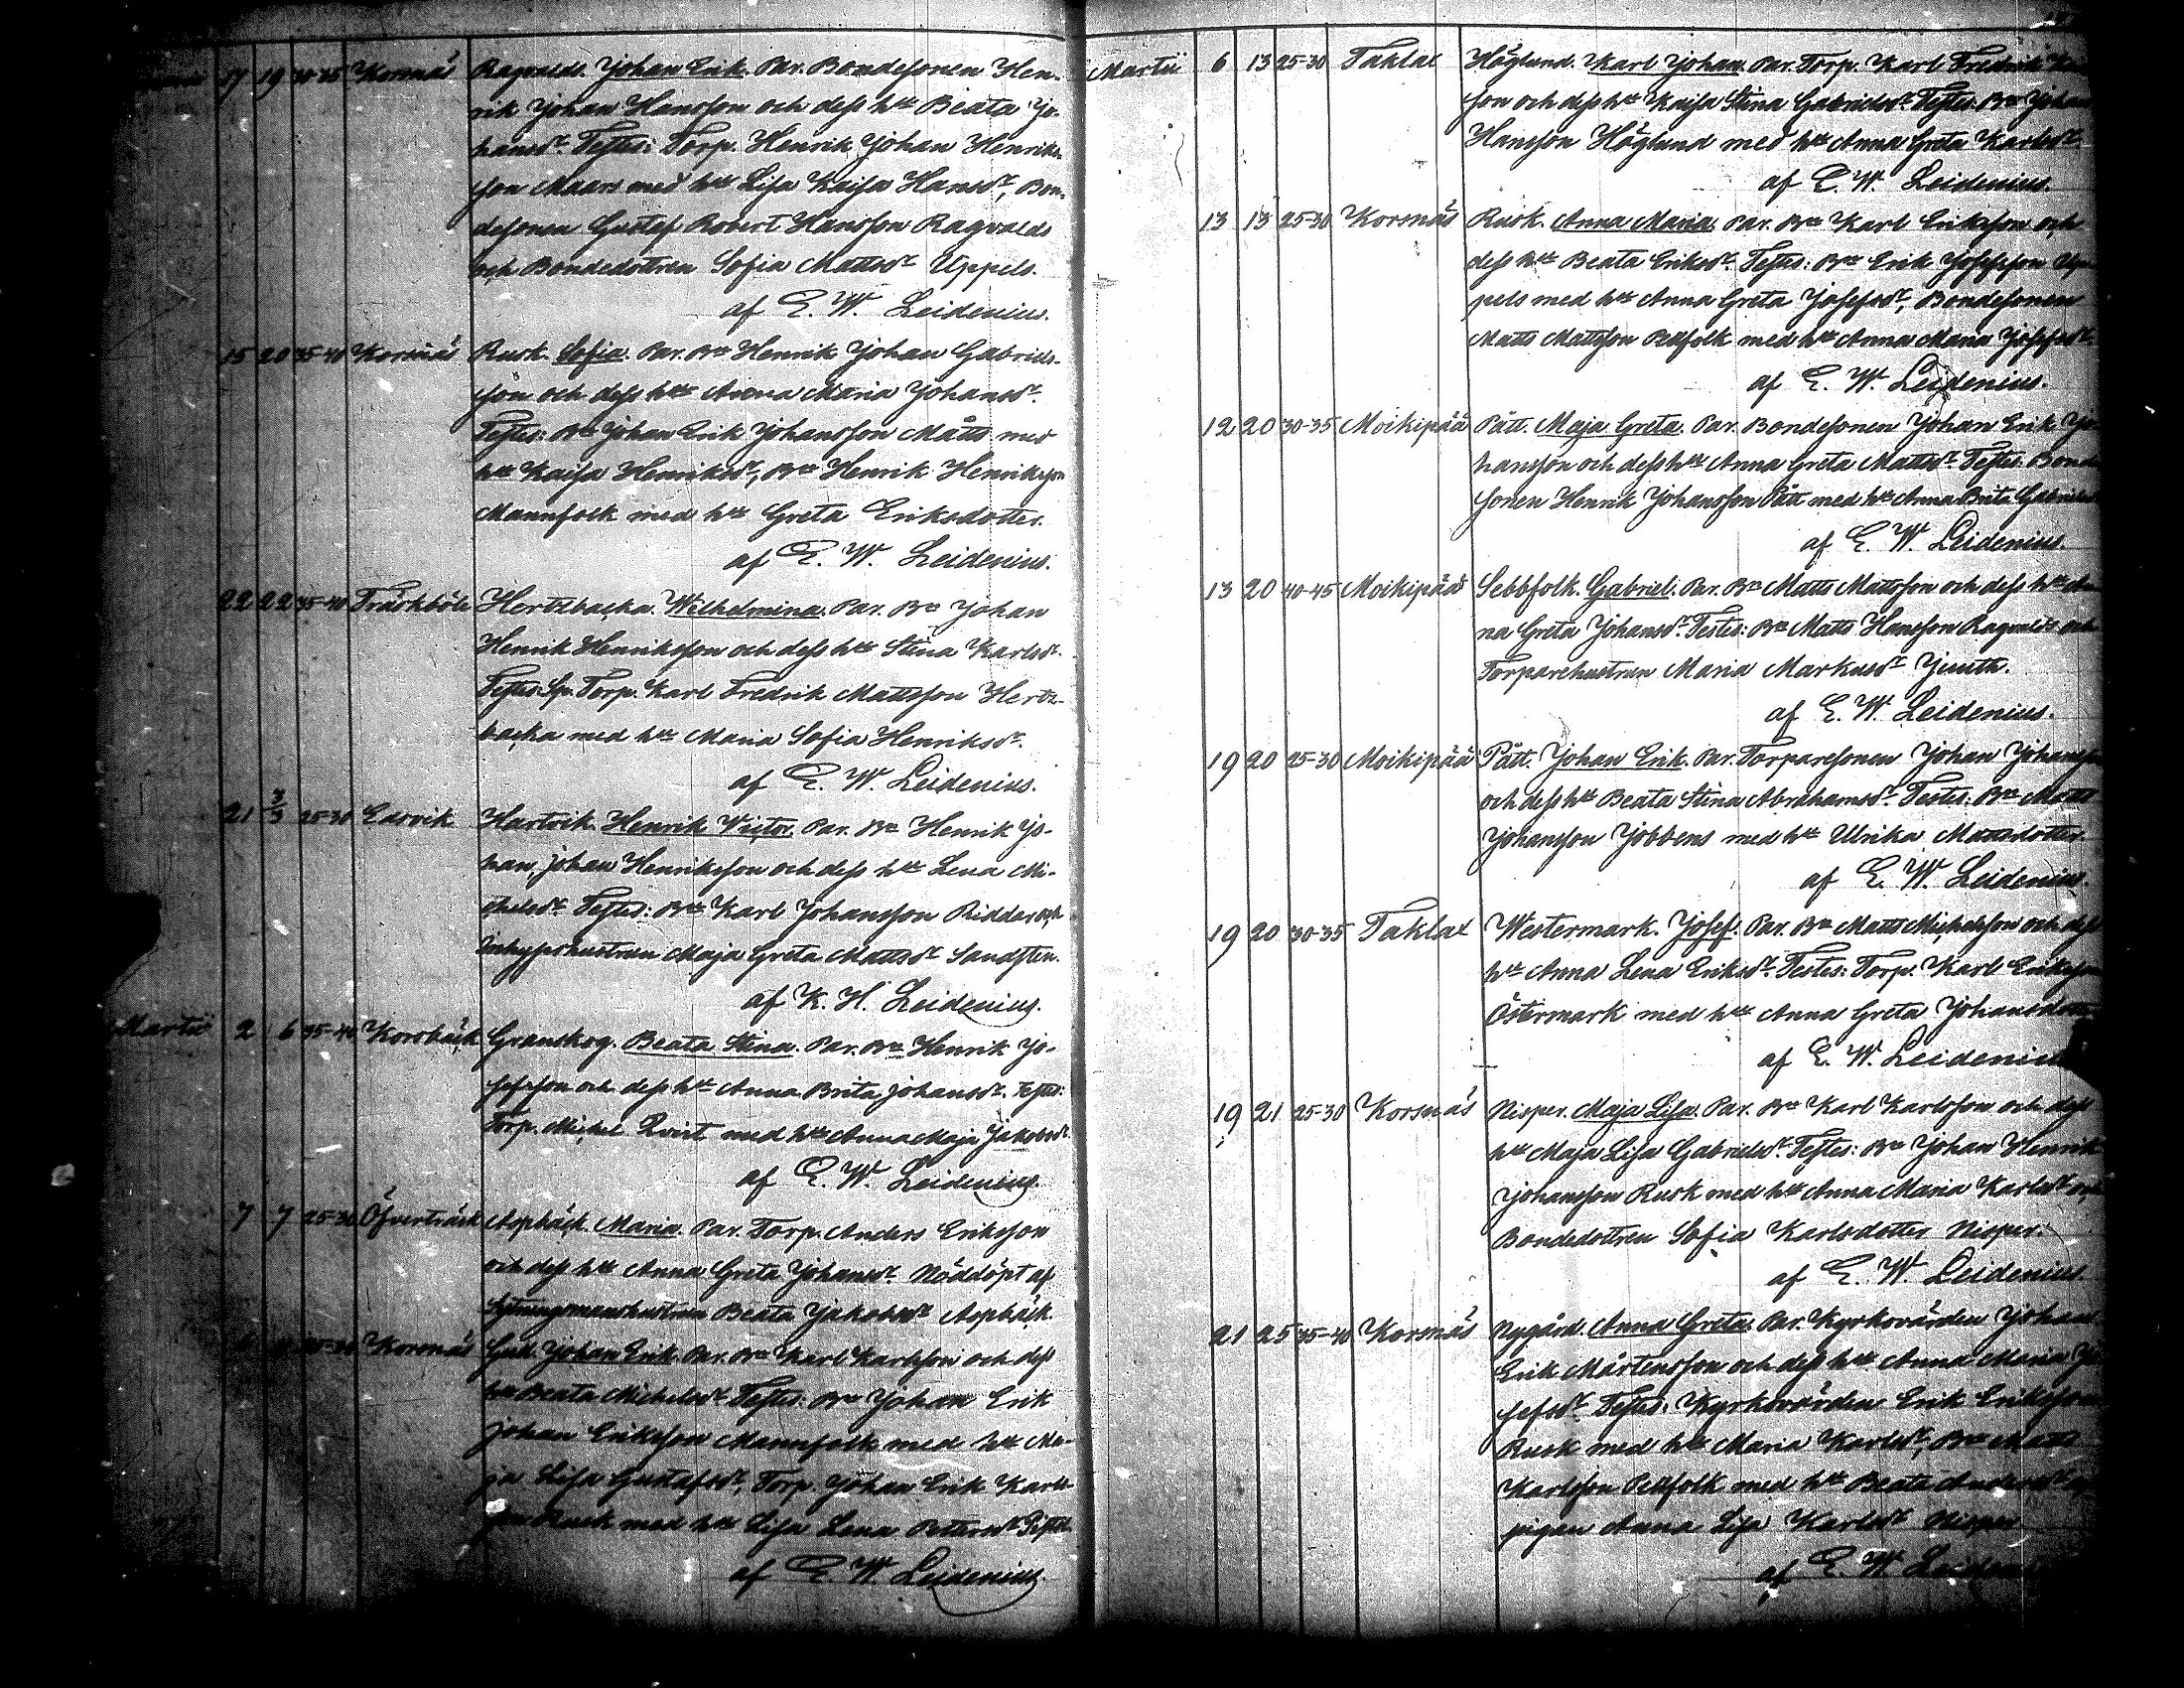 17 19 30-35 Korsnäs Ragvalds. Johan Erik. Par. Bondesonen Hen-
rik Johan Hansson och dess h:u Beata Jo-
hansd:r. Testes: Torp. Henrik Johan Henriks-
son Maars med h:u Lisa Kajsa Hansd:r, Bon-
desonen Gustaf Robert Hansson Ragvalds
och Bondedottren Sofia Mattsd:r Uppels.
af E. W. Leidenius.
15 20 35-40 Korsnäs Rusk. Sofia. Par. B:n Henrik Johan Gabriels-
son och dess h:u Anna Maria Johansd:r.
Testes: B:n Johan Erik Johansson Mätts med
h:u Kajsa Henriksd:r, B:n Henrik Henriksson
Mannfolk med h:u Greta Eriksdotter.
af E. W. Leidenius.
22 22 35-40 Träskböle Hertzbacka. Wilhelmina. Par. B:n Johan
Henrik Henriksson och dess h:u Stina Karlsd:r.
Testes: Sp. Torp. Karl Fredrik Mattsson Hertz-
backa med h:u Maria Sofia Henriksd:r.
af E. W. Leidenius.
21 2/3 25-30 Edsvik Hartvik. Henrik Victor. Par. B:n Henrik Jo-
han, Johan Henriksson och dess h:u Lena Mi-
chelsd:r. Testes: B:n Karl Johansson Riddar och
Inhyseshustrun Maja Greta Mattsd:r Sandsten.
af K. H. Leidenius.
Martii 2 6 35-40 Korsbäck Granskog. Beata Stina. Par. B:n Henrik Jo-
sefsson och dess h:u Anna Brita Johansd:r. Testes:
Torp. Michel Qvist med h:u Anna Maja Jakobsd:r.
af E. W. Leidenius.
7 7 25-30 Öfverträsk Aspbäck. Maria. Par. Torp. Anders Eriksson
och dess h:u Anna Greta Johansd:r. Nöddöpt af
Sytningsmanshustrun Beata Jakobsd:r Aspbäck.
Korsnäs Gull. Johan Erik. Par. B:n Karl Karlsson och dess
h:u Beata Michelsd:r. Testes: B:n Johan Erik
Johan Eriksson Mannfolk med h:u Ma-
ja Lisa Gustafsd:r, Torp. Johan Erik Karls-
son Rusk med h:u Lisa Lena Pettersd:r
af E. W. Leidenius.
Martii 6 13 25-30 Taklax Höglund. Karl Johan. Par. Torp. Karl Fredrik
son och dess h:u Kajsa Stina Gabrielsd:r. Testes: B:n Johan
Hansson Höglund med h:u Anna Greta Karlsd:r.
af E. W. Leidenius.
13 13 25-30 Korsnäs Rusk. Anna Maria. Par. B:n Karl Eriksson och
dess h:u Beata Eriksd:r. Testes: B:n Erik Josefsson Up-
pels med h:u Anna Greta Josefsd:r, Bondesonen
Matts Mattsson Pellfolk med h:u Anna Maria Josefsd:r.
af E. W. Leidenius.
12 20 30-35 Moikipää Pätt. Maja Greta. Par. Bondesonen Johan Erik Jo-
hansson och dess h:u Anna Greta Mattsd:r. Testes: Bonde-
sonen Henrik Johansson Pätt med h:u Anna Brita Gabrielsd
af E. W. Leidenius.
13 20 40-45 Moikipää Sebbfolk. Gabriel. Par. B:n Matts Mattsson och dess h:u An-
na Greta Johansd:r. Testes: B:n Matts Hansson Ragvalds och
Torparehustrun Maria Markusd:r Juuth.
af E. W. Leidenius.
19 20 25-30 Moikipää Pätt. Johan Erik. Par. Torparesonen Johan Johansson
och dess h:u Beata Stina Abrahamsd:r. Testes: B:n Matts
Johansson Jobbens med h:u Ulrika Mattsdotter.
af E. W. Leidenius.
19 20 30-35 Taklax Westermark. Josef. Par. B:n Matts Michelsson och dess
h:u Anna Lena Eriksd:r. Testes: Torp. Karl Eriksson
Östermark med h:u Anna Greta Johansdotter
af E. W. Leidenius
19 21 25-30 Korsnäs Nisper. Maja Lisa. Par. B:n Karl Karlsson och dess
h:u Maja Lisa Gabrielsd:r. Testes: B:n Johan Henrik
Johansson Rusk med h:u Anna Maria Karlsd:r och
Bondedottren Sofia Karlsdotter Nisper.
af E. W. Leidenius
21 25 35-40 Korsnäs Nygård. Anna Greta. Par. Kyrkovärden Johan
Erik Mårtensson och dess h:u Anna Maria Jo-
sefsd:r. Testes: Kyrkovärden Erik Eriksson
Rusk med h:u Maria Karlsd:r, B:n Matts
Karlsson Pellfolk med h:u Beata Andersd:r
pigan Anna Lisa Karlsd:r Nisper
af E. W. Leidenius